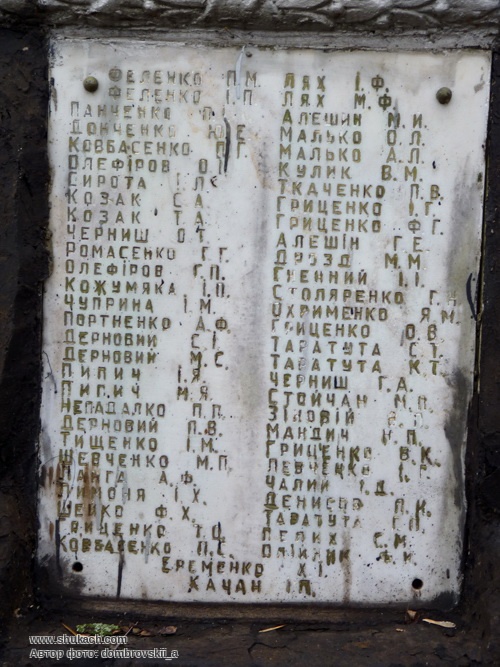 ФЕЛЕНКО П.М.
ФЕЛЕНКО І.П.
ПАНЧЕНКО П.
ДОНЧЕНКО Ю.Е.
КОВБАСЕНКО П.Г.
ОЛЕФІРОВ О.І.
СИРОТА І.Л.
КОЗАК С.А.
КОЗАК Т.А.
ЧЕРНИШ О.Т.
РОМАСЕНКО Г.Г.
ОЛЕФІРОВ Г.П.
КОЖУМЯКА І.П.
ЧУПРИНА І.М.
ПОРТНЕНКО А.Ф.
ДЕРНОВИЙ С.І.
ДЕРНОВИЙ М.С.
ПИПИЧ І.Я.
ПИПИЧ М.Я.
НЕПАДАЛКО П.П.
ДЕРНОВИЙ П.В.
ТИЩЕНКО І.М.
ШЕВЧЕНКО М.П.
ЛАНГА А.Ф.
ЛИМОНЯ І.Х.
ШЕЙКО Ф.Х.
Т.О.
КОВБАСЕНКО П.С.
ЛЯХ І.Ф.
ЛЯХ М.Ф.
АЛЕШИН М.И.
МАЛЬКО О.Л.
МАЛЬКО А.Л.
КУЛИК В.М.
ТКАЧЕНКО П.В.
ГРИЦЕНКО І.Г.
ГРИЦЕНКО Ф.Г.
АЛЕШІН Г.Е.
ДРОЗД М.М.
ГНЕННИЙ І.І.
СТОЛЯРЕНКО Г.Н.
ОХРИМЕНКО Я.М.
ГРИЦЕНКО О.В.
ТАРАТУТА С.Т.
ТАРАТУТА К.Т.
ЧЕРНИШ Г.А.
СТОЙЧАН М.П.
ЗІНОВІЙ
МАНДИЧ И.П.
ГРИЦЕНКО В.К.
ЛЕВЧЕНКО І.Г.
ЧАЛИЙ І.Д.
ДЕНИСОВ П.К.
ТАРАТУТА Г.П.
ПЕЛИХ С.М.
ОЛІЙНИК
ЕРЕМЕНКО Х.І.
КАЧАН І.П.
www.shukach.com
Автор фото: dombrovskii_a